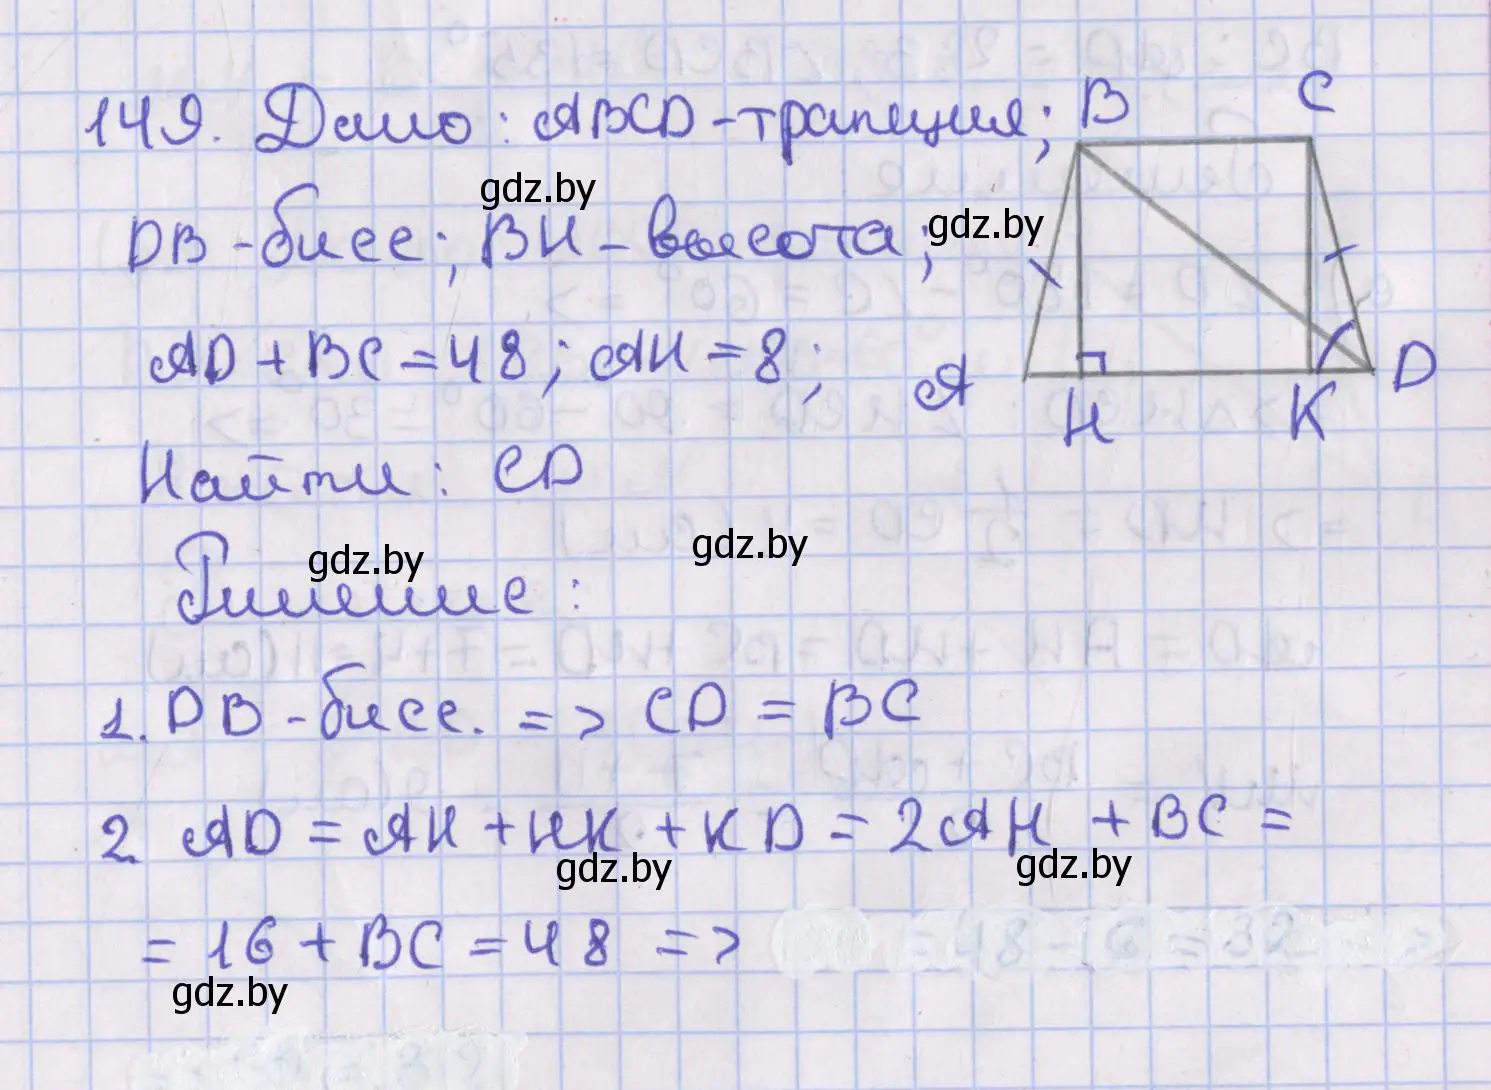 149. Дано: ABCD - трапеция;
DB - бисс; BH - высота;
AD + BC = 48; AH = 8;
Найти: CD
Решение:
1. DB - бисс. => CD = BC
2. AD = AH + HK + KD = 2AH + BC =
= 16 + BC = 48 =>
= 48 - 16 = 32
B
C
A
H
K
D
gdz.by
gdz.by
gdz.by
gdz.by
gdz.by
gdz.by
gdz.by